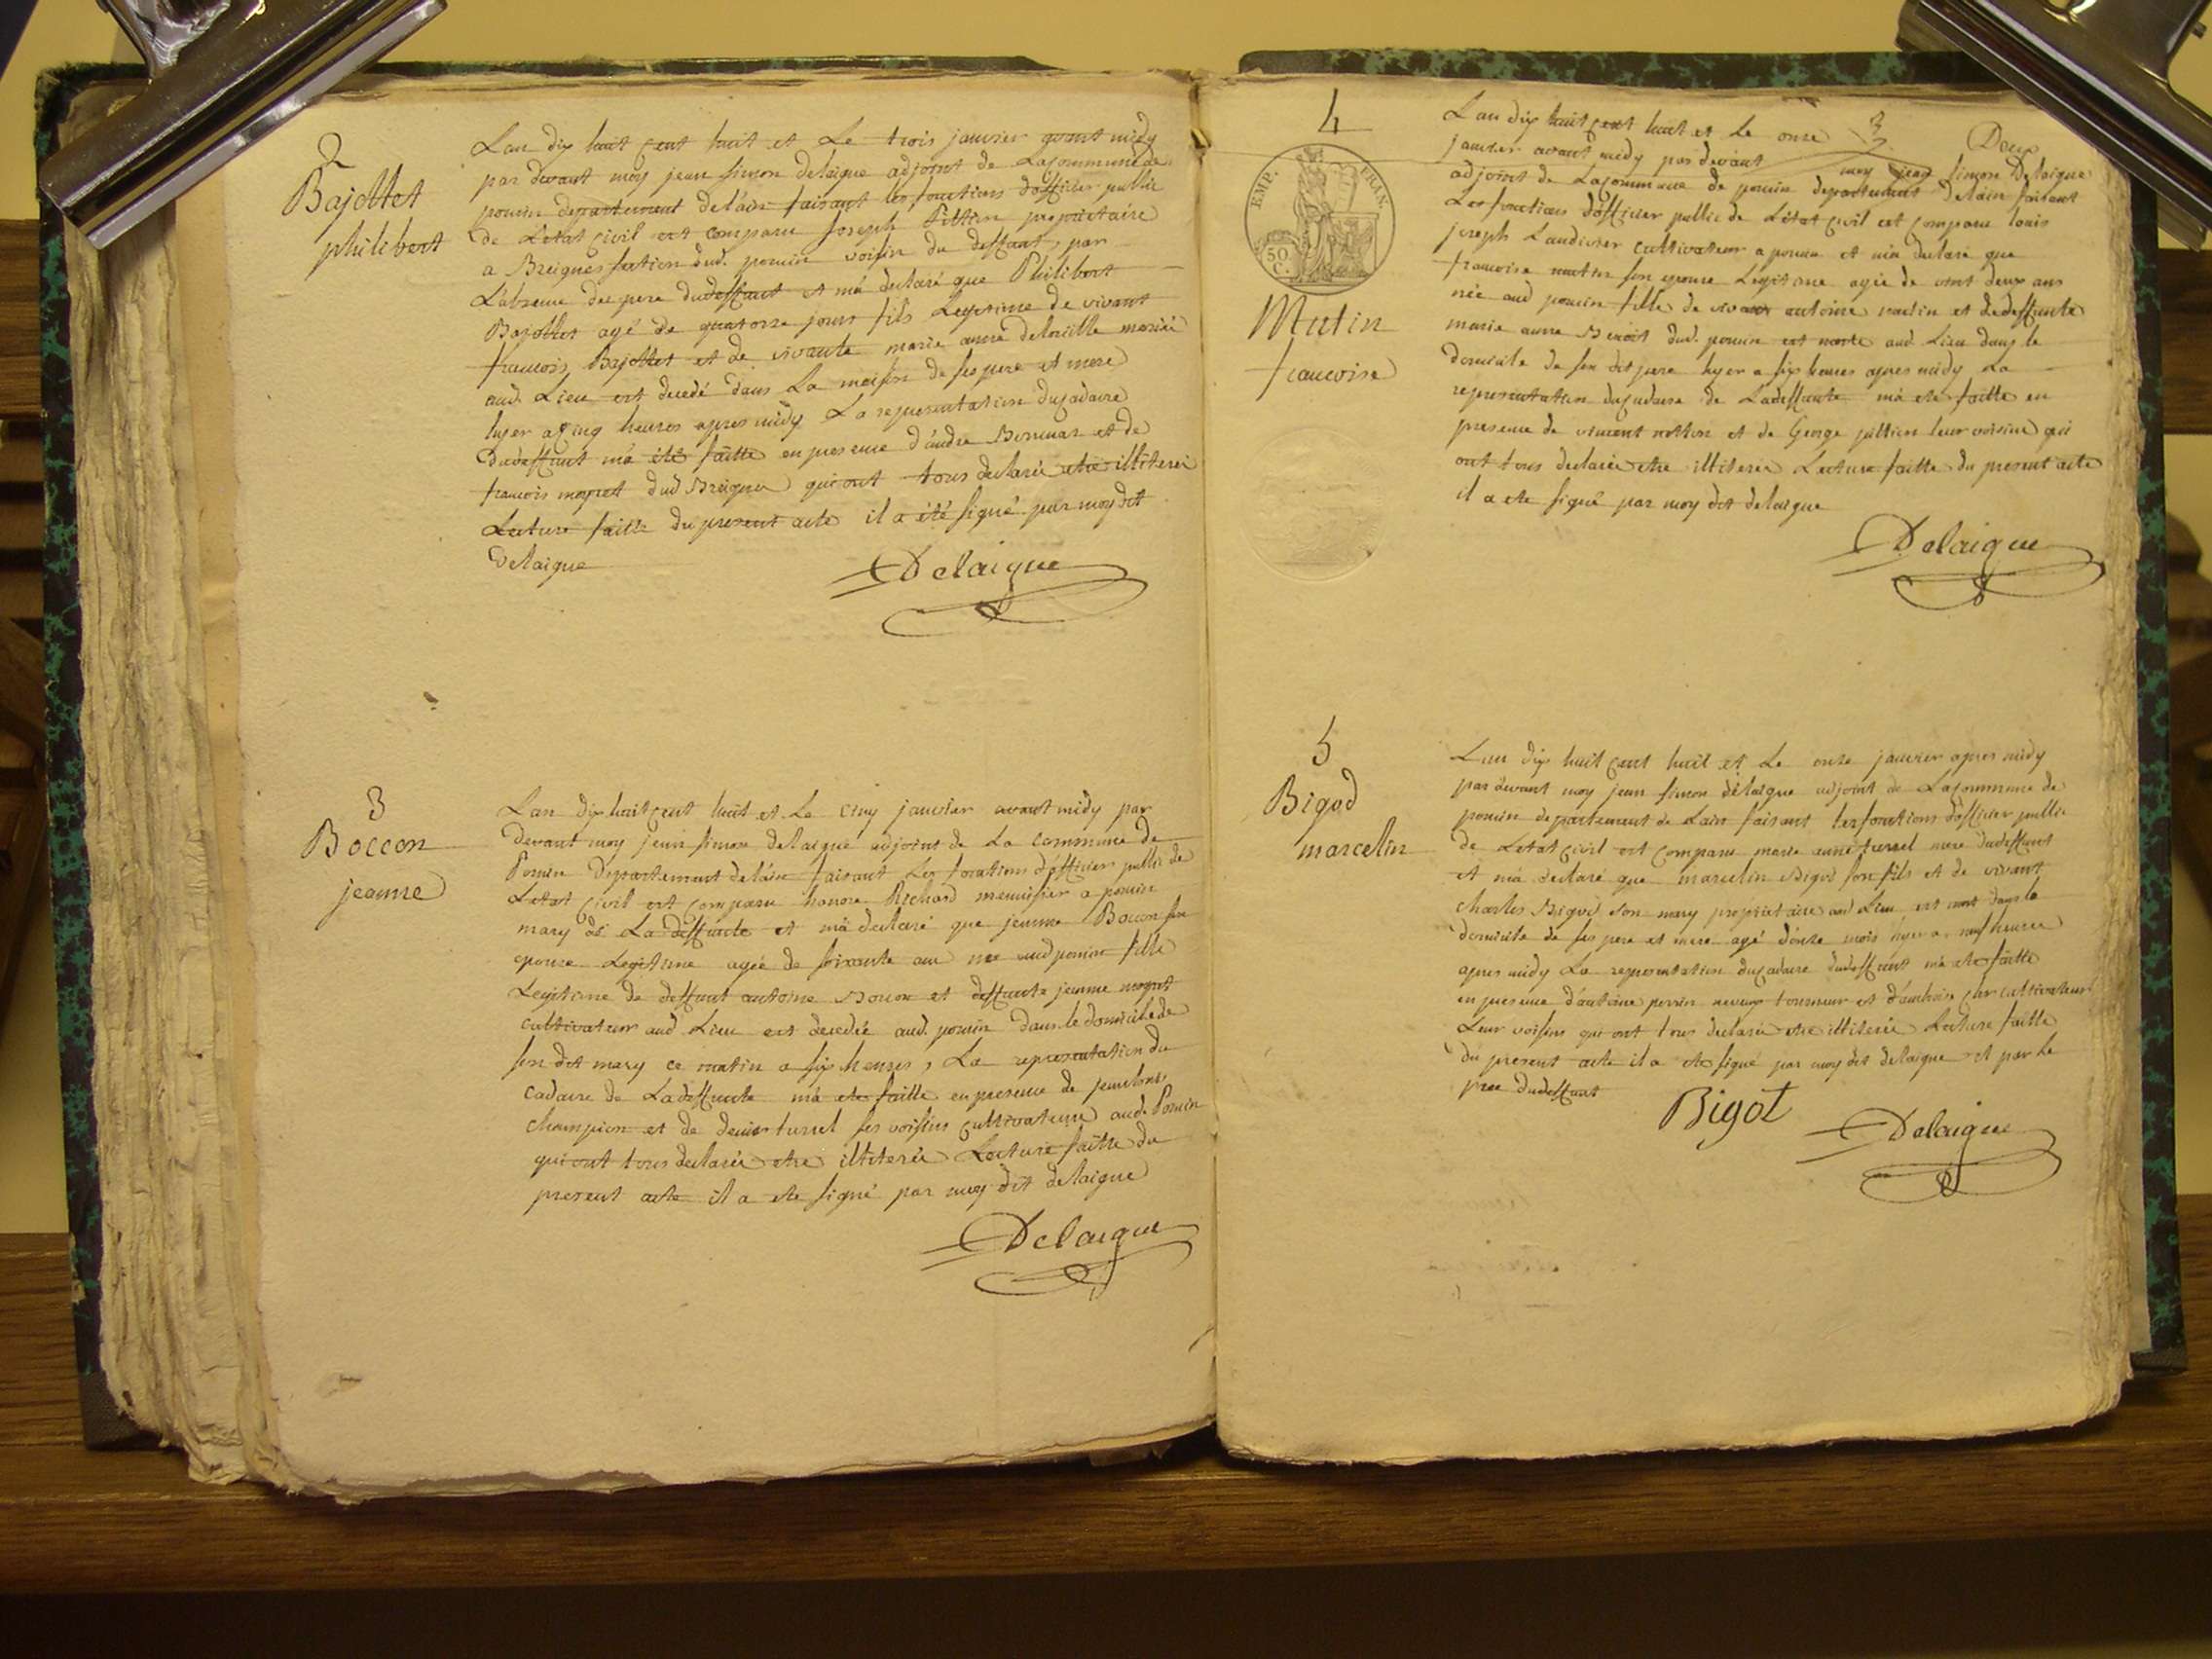 2
Bajollet
philibert
Lan dix huit cent huit et Le trois janvier avant midy
par devant moy jean simon delaigue adjoint de La commune de
poncin departement de lain faisant les fonctions dofficier public
de Letat civil est comparu joseph proprietaire
a Breignes section dud. poncin voisin du deffunt, par
L'absence des pere dudeffunt et m'a declaré que Philibert
Bajollet agé de quatorze jours fils Legitime de vivant
francois Bajollet et de vivante marie anne mariée
aud. Lieu est decedé dans La maison de ses pere et mere
hyer a cinq heures apres midy La representation du cadavre
dudeffunt m'a été faitte en presence d'andre et de
francois moyret dud Breignes qui ont tous declarés etre illiterés
Lecture faitte du present acte il a été signé par moy dit
Delaigue
Delaigue
3
Boccon
jeanne
Lan dix huit cent huit et Le cinq janvier avant midy par
devant moy jean simon delaigue adjoint de La commune de
Poncin Departement de lain faisant Les fonctions d'officier public de
Letat civil est comparu honoré Richard menuisier a poncin
mary de La deffunte et m'a declaré que jeanne Boccon son
epouse Legitime agée de soixante ans née aud poncin fille
Legitime de deffunt antoine Bocon et deffunte jeanne moyret
cultivateur aud Lieu est decedée aud. poncin dans le domicile de
son dit mary ce matin a six heures, La representation du
cadavre de La deffunte m'a ete faitte en presence de jean louis
champion et de denis turrel ses voisins cultivateurs aud. Poncin
qui ont tous declarés etre illiterés Lecture faitte du
present acte il a ete signé par moy dit delaigue
Delaigue
4
EMP. FRAN.
50
C.
Mutin
francoise
3
Deux
Lan dix huit cent huit et le onze
janvier avant midy par devant moy jean simon Delaigue
adjoint de La commune de poncin departement de lain faisant
Les fonctions d'officier public de Létat civil est comparu louis
joseph Landivier cultivateur a poncin et m'a declaré que
francoise mutin son epouse Legitime agée de vint deux ans
née aud poncin fille de vivant antoine mutin et de deffunte
marie anne Benoit dud. poncin est morte aud. Lieu dans le
domicile de son dit pere hyer a six heures apres midy La
representation du cadavre de La deffunte m'a eté faitte en
presence de vincent et de George leur voisins qui
ont tous declarés etre illiterés Lecture faitte du present acte
il a ete signé par moy dit delaigue
Delaigue
5
Bigod
marcelin
Lan dix huit cent huit et Le onze janvier apres midy
par devant moy jean simon delaigue adjoint de La commune de
poncin departement de Lain faisant les fonctions d'officier public
de Letat civil est comparu marie anne turrel mere dudeffunt
et m'a declaré que marcelin Bigod son fils et de vivant
charles Bigod son mary proprietaire aud Lieu est mort dans le
domicile de ses pere et mere agé d'onze mois hyer a neuf heures
apres midy La representation du cadavre dudeffunt m'a ete faitte
en presence d'antoine perrin neveux tourneur et d'ambroise cultivateur
Leur voisins qui ont tous declarés etre illiterés Lecture faitte
du present acte il a ete signé par moy dit delaigue et par le
pere dudeffunt
Bigot
Delaigue